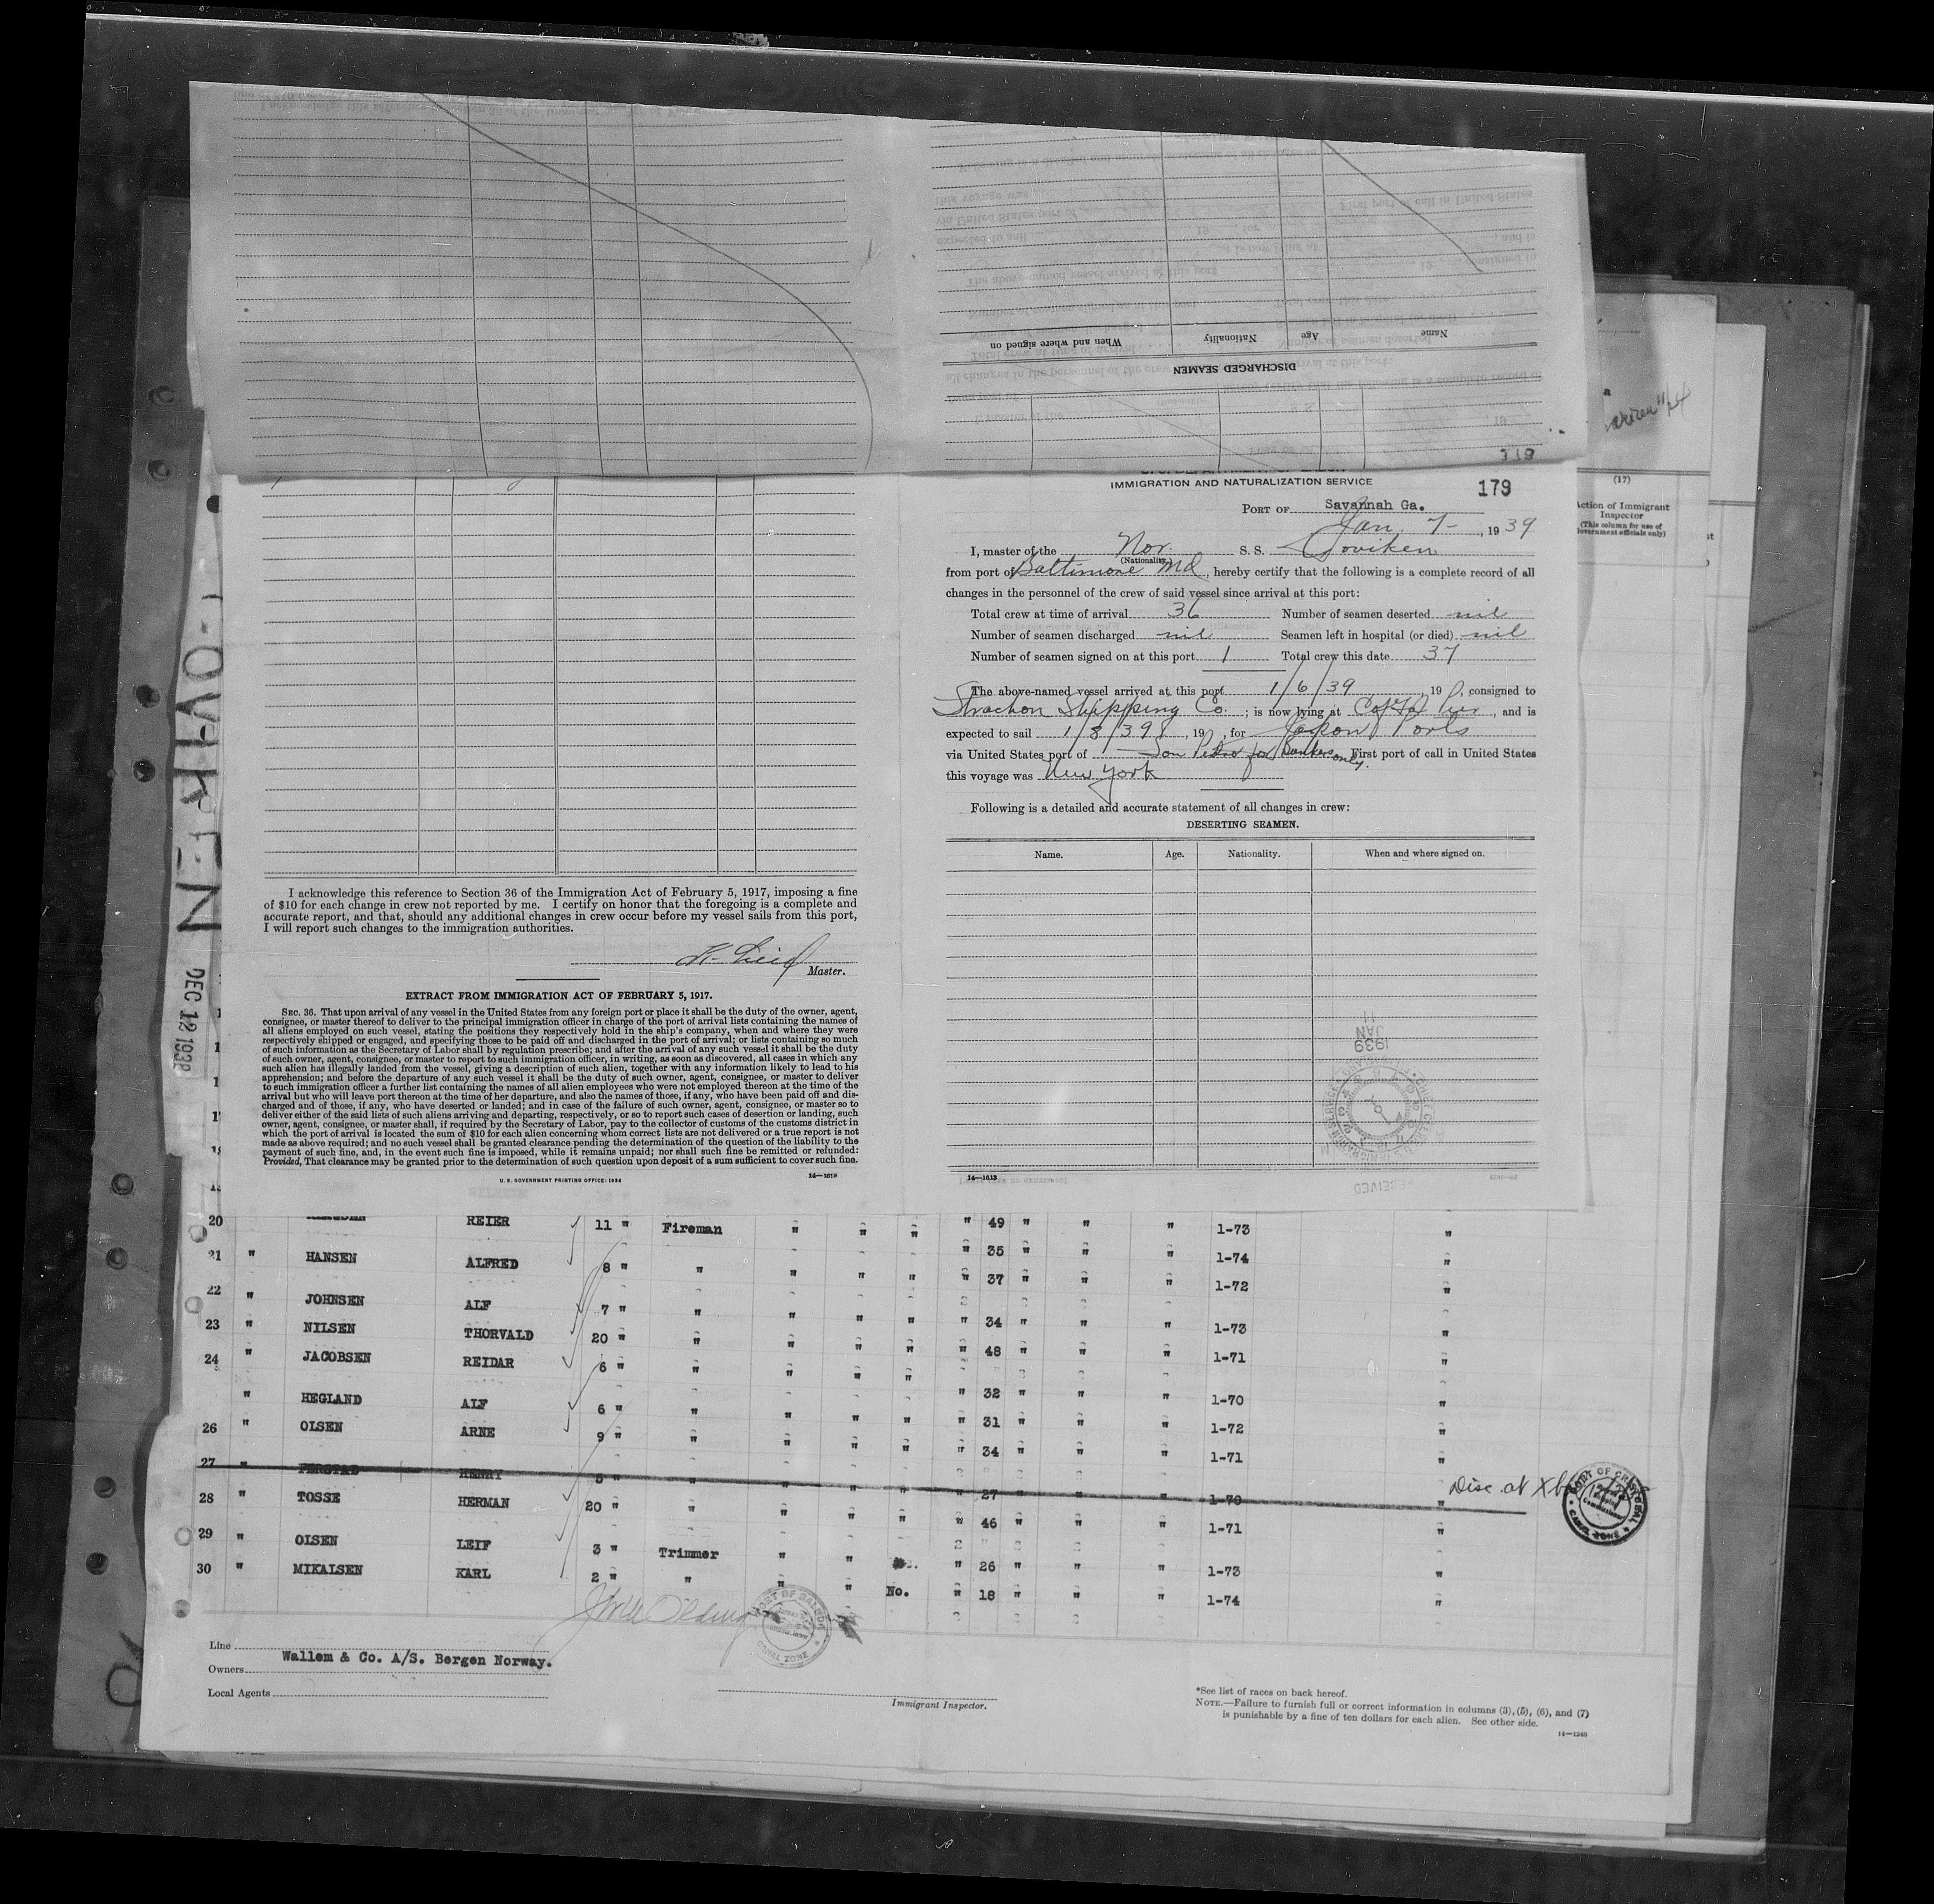 When and where signed on Nationality Age Name
DISCHARGED SEAMEN
IMMIGRATION AND NATURALIZATION SERVICE
179
PORT OF Savannah Ga.
Jan. 7- , 1939
I, master of the Nor. S. S.
(Nationality)
from port of Baltimore Md, hereby certify that the following is a complete record of all
changes in the personnel of the crew of said vessel since arrival at this port:
Total crew at time of arrival 36 Number of seamen deserted nil
Number of seamen discharged nil Seamen left in hospital (or died) nil
Number of seamen signed on at this port 1 Total crew this date 37
The above-named vessel arrived at this port 1/6/39 , 19 , consigned to
Strachan Shipping Co. ; is now lying at Pier , and is
expected to sail 1/8/39 , 19 , for Japan Ports
via United States port of San Pedro for Bunkers only. First port of call in United States
this voyage was New York
Following is a detailed and accurate statement of all changes in crew:
DESERTING SEAMEN.
Name. Age. Nationality. When and where signed on.
JAN 11
1939
14—1613
I acknowledge this reference to Section 36 of the Immigration Act of February 5, 1917, imposing a fine
of $10 for each change in crew not reported by me. I certify on honor that the foregoing is a complete and
accurate report, and that, should any additional changes in crew occur before my vessel sails from this port,
I will report such changes to the immigration authorities.
Master.
EXTRACT FROM IMMIGRATION ACT OF FEBRUARY 5, 1917.
SEC. 36. That upon arrival of any vessel in the United States from any foreign port or place it shall be the duty of the owner, agent,
consignee, or master thereof to deliver to the principal immigration officer in charge of the port of arrival lists containing the names of
all aliens employed on such vessel, stating the positions they respectively hold in the ship's company, when and where they were
respectively shipped or engaged, and specifying those to be paid off and discharged in the port of arrival; or lists containing so much
of such information as the Secretary of Labor shall by regulation prescribe; and after the arrival of any such vessel it shall be the duty
of such owner, agent, consignee, or master to report to such immigration officer, in writing, as soon as discovered, all cases in which any
such alien has illegally landed from the vessel, giving a description of such alien, together with any information likely to lead to his
apprehension; and before the departure of any such vessel it shall be the duty of such owner, agent, consignee, or master to deliver
to such immigration officer a further list containing the names of all alien employees who were not employed thereon at the time of the
arrival but who will leave port thereon at the time of her departure, and also the names of those, if any, who have been paid off and dis-
charged and of those, if any, who have deserted or landed; and in case of the failure of such owner, agent, consignee, or master so to
deliver either of the said lists of such aliens arriving and departing, respectively, or so to report such cases of desertion or landing, such
owner, agent, consignee, or master shall, if required by the Secretary of Labor, pay to the collector of customs of the customs district in
which the port of arrival is located the sum of $10 for each alien concerning whom correct lists are not delivered or a true report is not
made as above required; and no such vessel shall be granted clearance pending the determination of the question of the liability to the
payment of such fine, and, in the event such fine is imposed, while it remains unpaid; nor shall such fine be remitted or refunded:
Provided, That clearance may be granted prior to the determination of such question upon deposit of a sum sufficient to cover such fine.
U. S. GOVERNMENT PRINTING OFFICE: 1934
DEC 12 1938
(17)
Action of Immigrant
Inspector
(This column for use of
Government officials only)
20 REIER 11 " Fireman " " " " 49 " " " 1-73 "
21 " HANSEN ALFRED 8 " " " " " " 35 " " " 1-74 "
22 " JOHNSEN ALF 7 " " " " " " 37 " " " 1-72 "
23 " NILSEN THORVALD 20 " " " " " " 34 " " " 1-73 "
24 " JACOBSEN REIDAR 6 " " " " " " 48 " " " 1-71 "
" HEGLAND ALF 6 " " " " " " 32 " " " 1-70 "
26 " OLSEN ARNE 9 " " " " " " 31 " " " 1-72 "
34 " " " 1-71 "
27 " HENRY 5 " " " " " " 27 " " " 1-70 " Disc. at Xb
28 " TOSSE HERMAN 20 " " " " " " 46 " " " 1-71 "
29 " OLSEN LEIF 3 " Trimmer " " " 26 " " " 1-73 "
30 " MIKALSEN KARL 2 " " " " No. " 18 " " " 1-74 "
PORT OF CRISTOBAL
CANAL ZONE
PORT OF BALBOA
CANAL ZONE
Line
Owners Wallem & Co. A/S. Bergen Norway.
Local Agents
Immigrant Inspector.
*See list of races on back hereof.
NOTE.—Failure to furnish full or correct information in columns (3), (5), (6), and (7)
is punishable by a fine of ten dollars for each alien. See other side.
14—1240